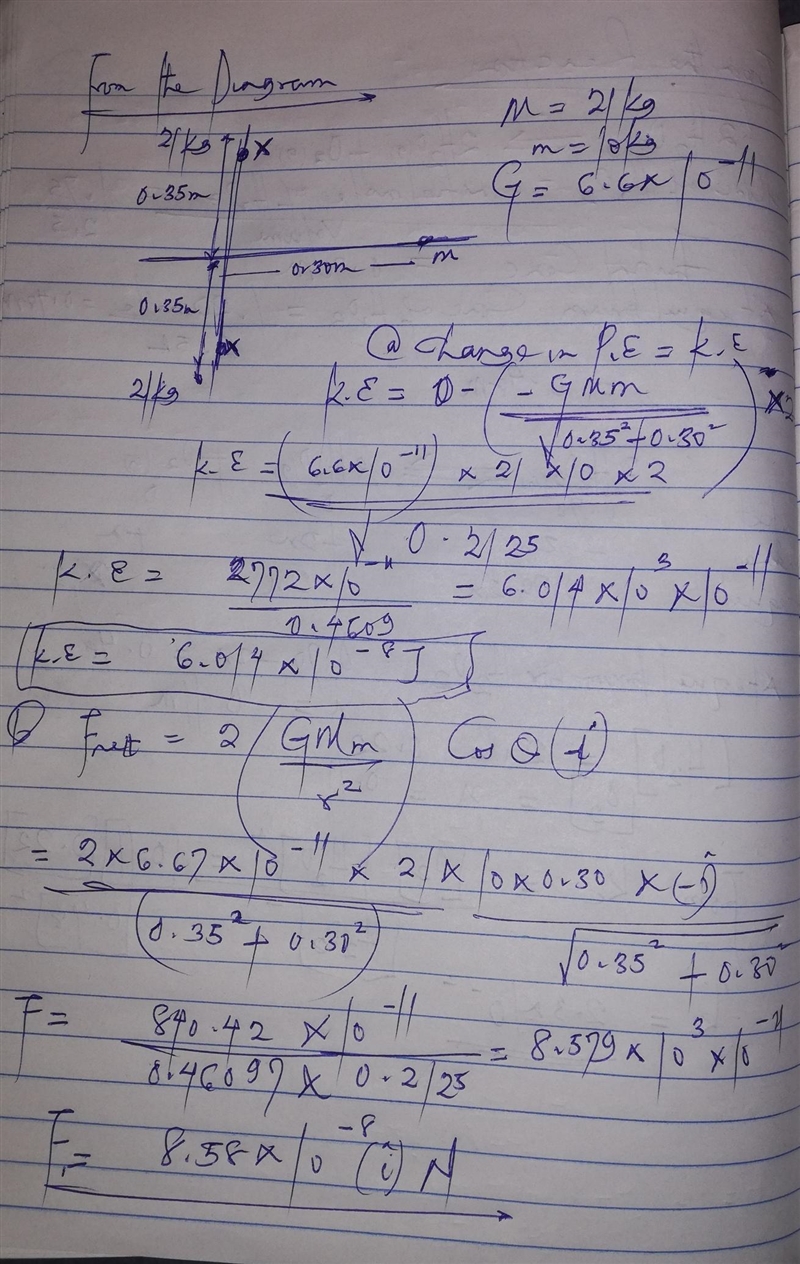 From the Diagram
M = 21kg
m = 10kg
G = 6.6x10^-11
21kg x
0.35m
0.30m m
0.35m
x
21kg
(a) Change in P.E = K.E
K.E = 0 - ( - GMm / √0.35² + 0.30² ) x2
K.E = (6.6x10^-11) x 21 x10 x 2 / √0.2125
K.E = 2772x10^-11 / 0.4609 = 6.014x10^3 x10^-11
K.E = 6.014x10^-8 J
(b) Fnet = 2 ( GMm / r² ) Cos θ (-î)
= 2x6.67x10^-11 x 21x / (0.35² + 0.30²) 10x0.30 x(-î) / √0.35² + 0.30²
F = 840.42 x10^-11 / 0.46097x 0.2125 = 8.579x10^3 x10^-11
F = 8.58x10^-8 (î) N